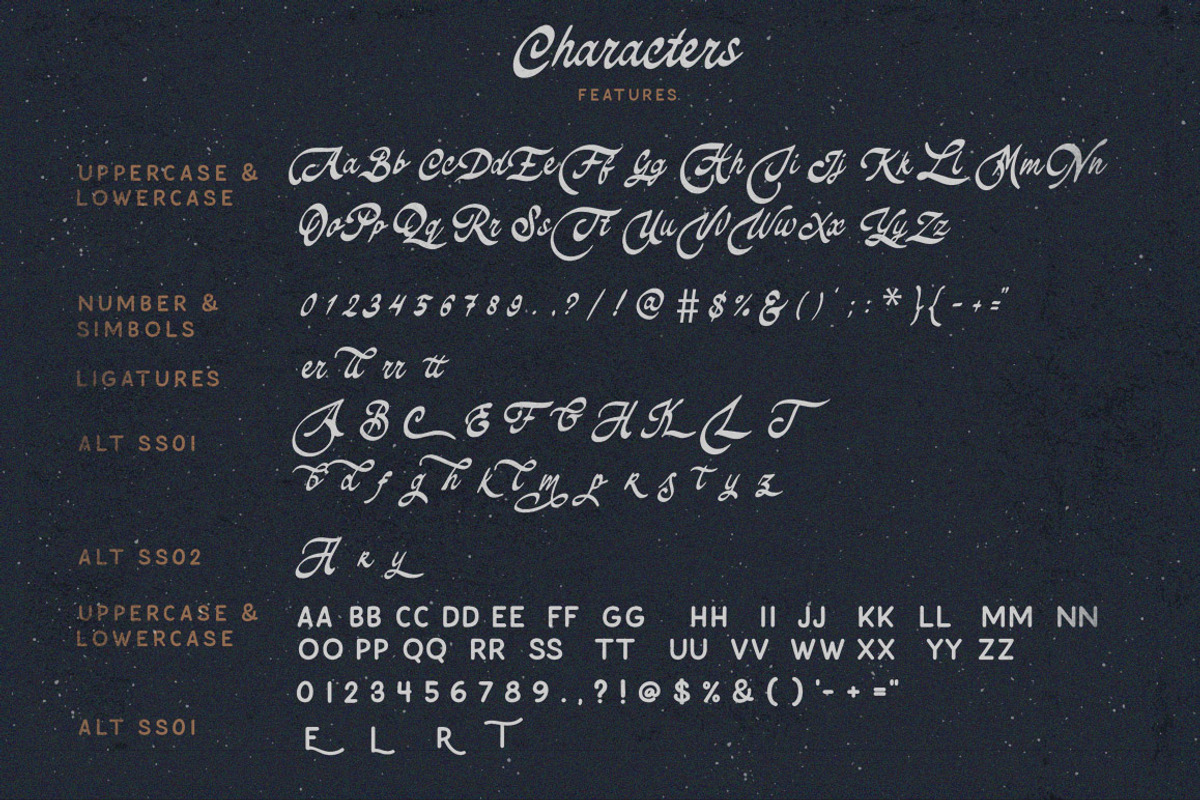 Characters
FEATURES
UPPERCASE &
LOWERCASE
AaBb CcDdEeFf Gg Hh Ii Jj Kk Ll MmNn
OoPp Qq Rr Ss Tt Uu Vv Ww Xx Yy Zz
NUMBER &
SIMBOLS
0 1 2 3 4 5 6 7 8 9 . , ? / ! @ # $ % & ( ) ' ; : * } { - + = "
LIGATURES
er ll rr tt
ALT SS01
A B C E F G H K L T
b d f g h k l m p r s t y z
ALT SS02
A r y
UPPERCASE &
LOWERCASE
AA BB CC DD EE FF GG HH II JJ KK LL MM NN
OO PP QQ RR SS TT UU VV WW XX YY ZZ
0 1 2 3 4 5 6 7 8 9 . , ? ! @ $ % & ( ) ' - + = "
ALT SS01
E L R T